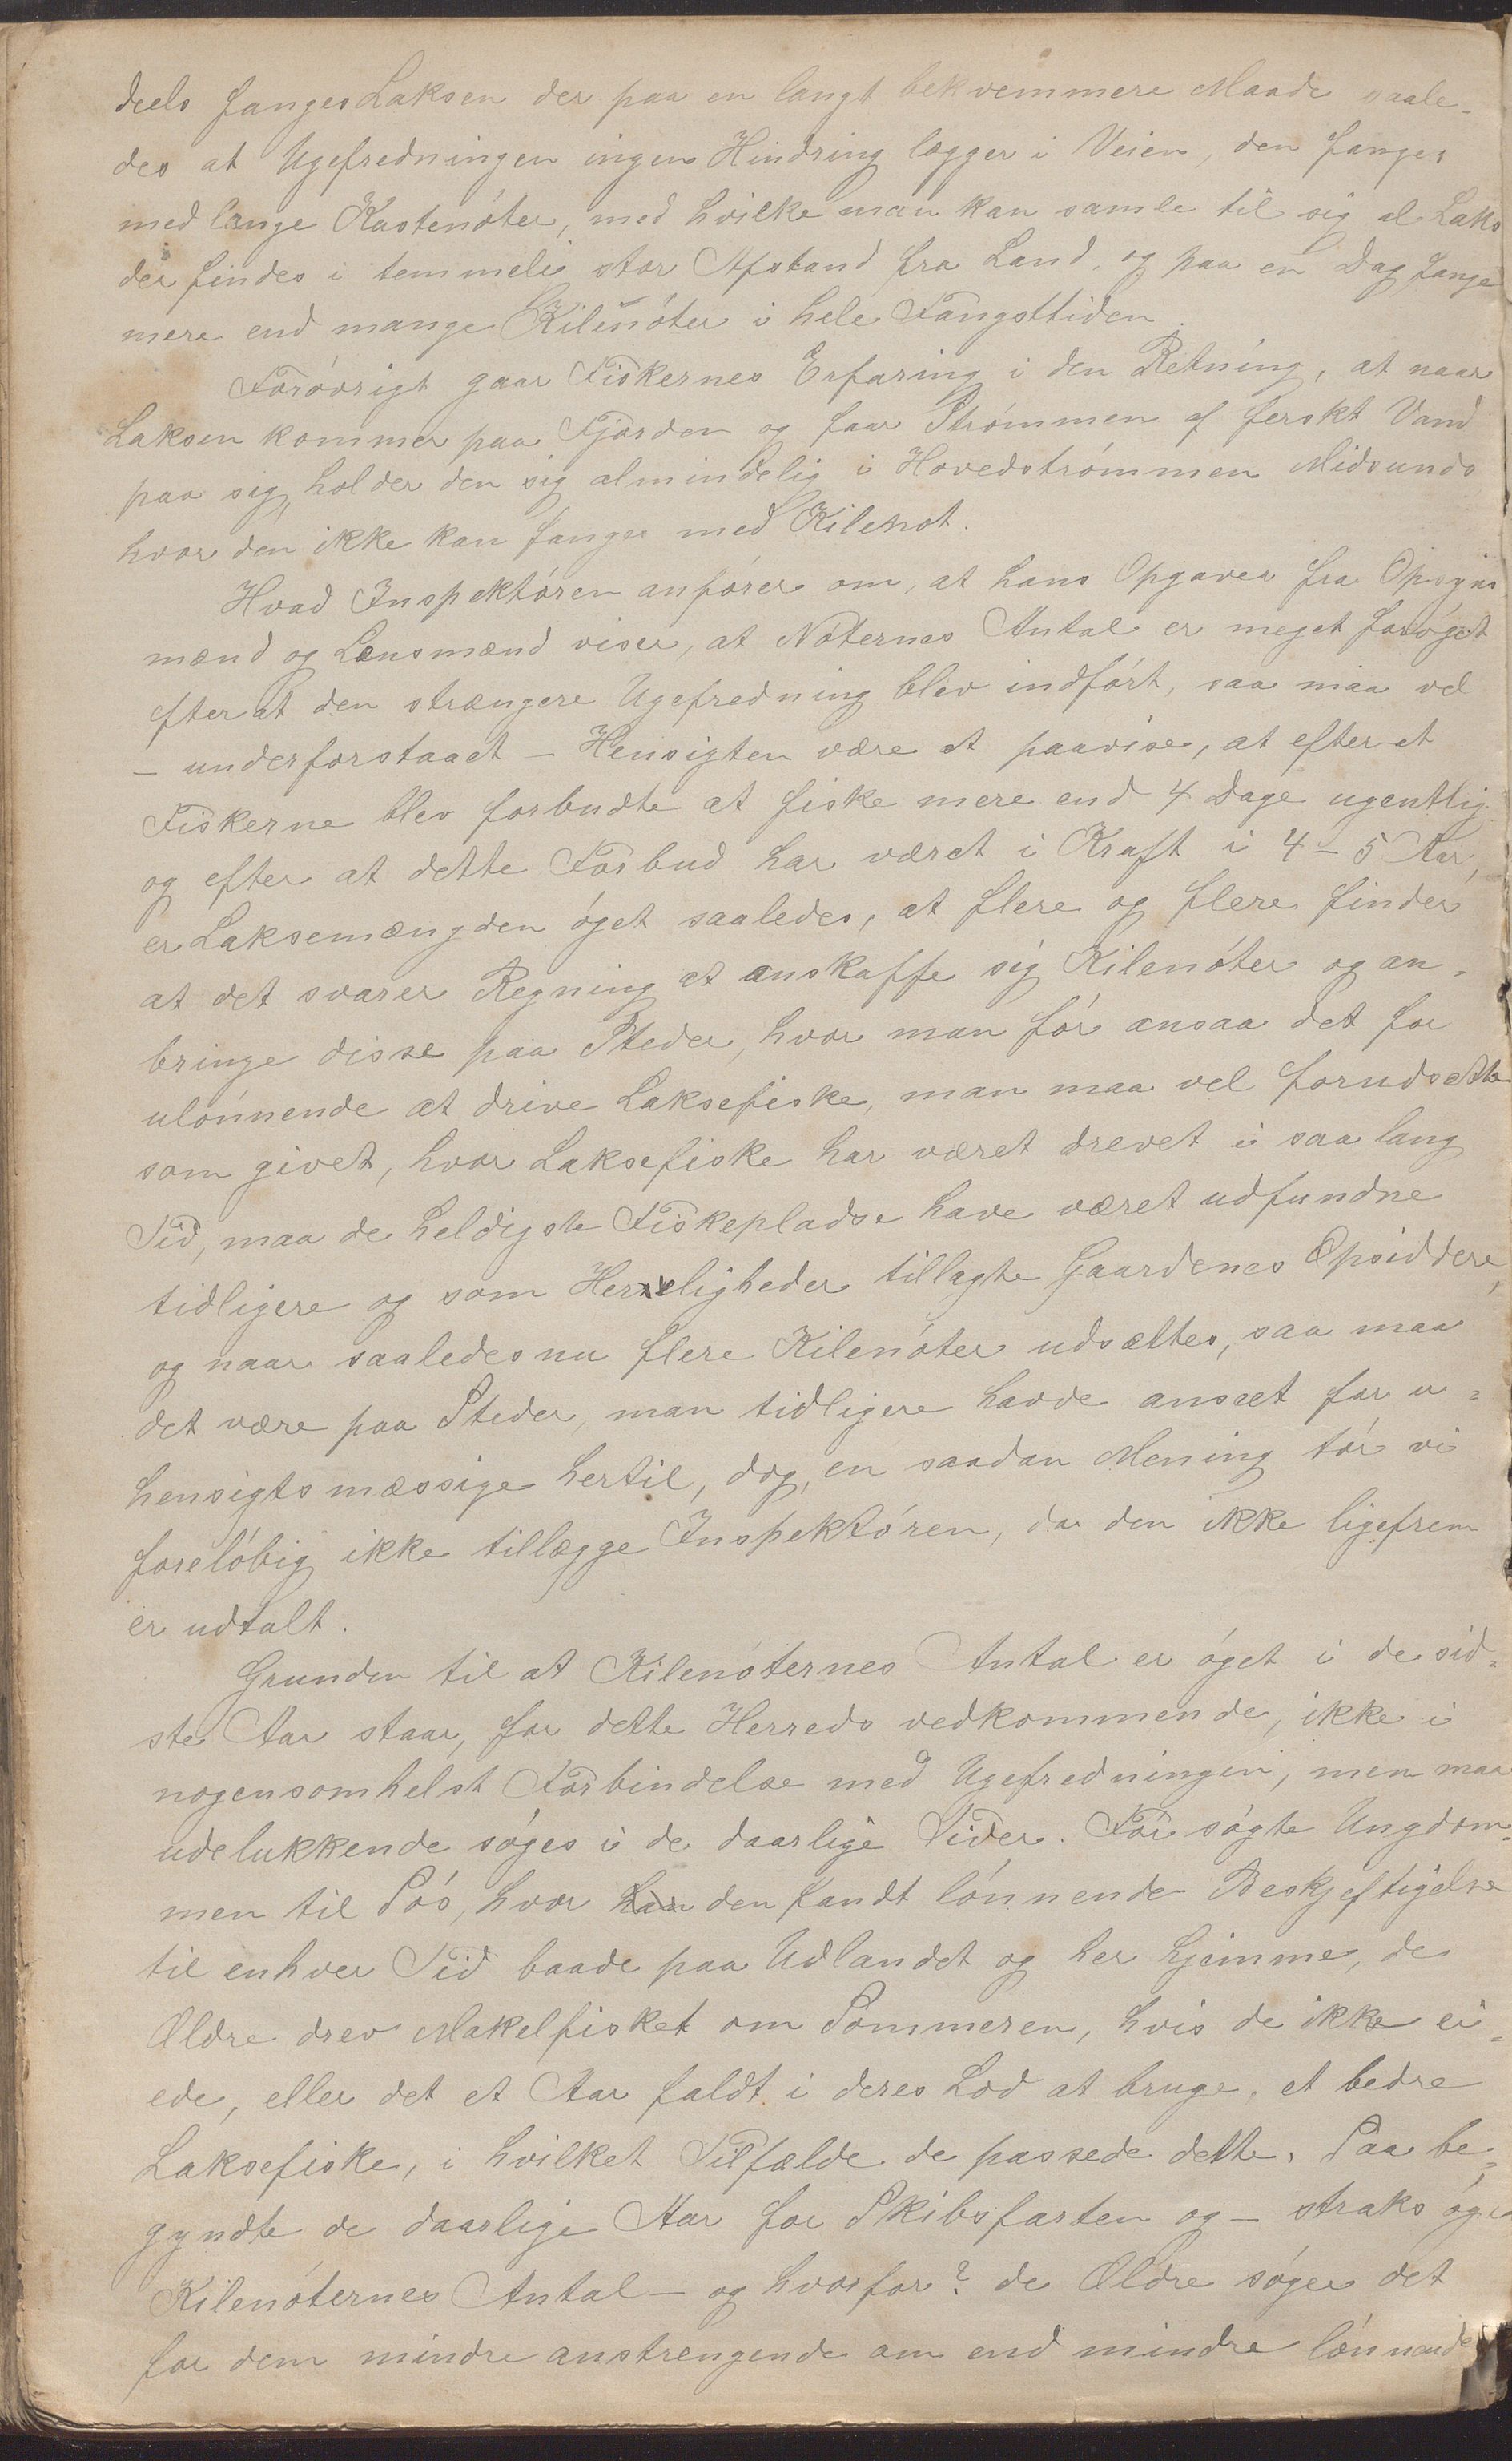 deels fanges Laksen der paa en langt bekvemmere Maade saale-
des at Ugefredningen ingen Hindring lægger i Veien, den fanges
med lange Kastenóter, med hvilke man kan samle til sig al Laks
der findes i temmelig stor Afstand fra Land, og paa en Dag fange
mere end mange Kilenóter i hele Fangsttiden.
Foróvrigt gaar Fiskernes Erfaring i den Retning, at naar
Laksen kommer paa Fjorden og faar Strómmen af ferskt Vand
paa sig, holder den sig almindelig i Hovedstrómmen Midsunds
hvor den ikke kan fanges med Kilenot.
Hvad Inspektóren anfórer om, at hans Opgaver fra Opsyns
mænd og Lensmænd viser, at Nóternes Antal er meget foróget
efter at den strængere Ugefredning blev indfórt, saa maa vel
- underforstaaet - Hensigten være at paavise, at efter at
Fiskerne blev forbudte at fiske mere end 4 Dage ugentlig
og efter at dette Forbud har været i Kraft i 4-5 Aar,
er Laksemængden óget saaledes, at flere og flere finder
at det svarer Regning at anskaffe sig Kilenóter og an-
bringe disse paa Steder, hvor man fór ansaa det for
ulónnende at drive Laksefiske, man maa vel forudsætte
som givet, hvor Laksefiske har været drevet i saa lang
Tid, maa de heldigste Fiskepladse have været udfundne
tidligere og som Herligheder tillagte Gaardenes Opsiddere,
og naar saaledes nu flere Kilenóter udsættes, saa maa
det være paa Steder, man tidligere havde anseet for u-
hensigtsmæssige hertil, dog, en saadan Mening tór vi
forelóbig ikke tillægge Inspektóren, da den ikke ligefrem
er udtalt.
Grunden til at Kilenóternes Antal er óget i de sid-
ste Aar staar, for dette Herreds vedkommende, ikke i
nogensomhelst Forbindelse med Ugefredningen, men maa
udelukkende sóges i de daarlige Tider. Fór sógte Ungdom-
men til Sós, hvor den fandt lónnende Beskjeftigelse
til enhver Tid baade paa Udlandet og her hjemme, de
Ældre drev Makelfisket om Sommeren, hvis de ikke ei-
ede, eller det et Aar faldt i deres Lod at bruge, et bedre
Laksefiske, i hvilket Tilfælde de passede dette. Saa be-
gyndte de daarlige Aar for Skibsfarten og - straks óges
Kilenóternes Antal - og hvorfor? de Ældre sóger det
for dem mindre anstrengende om end mindre lónnende